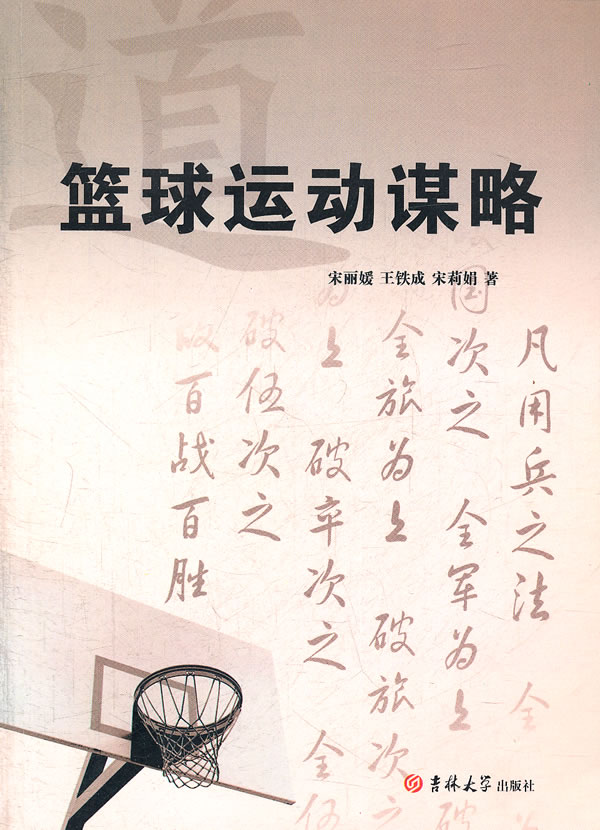 道
篮球运动谋略
宋丽媛 王铁成 宋莉娟 著
凡用兵之法 全
国次之 全军为上 破
全旅为上 破旅次之
为上 破卒次之 全伍
破伍次之
故百战百胜
吉林大学出版社